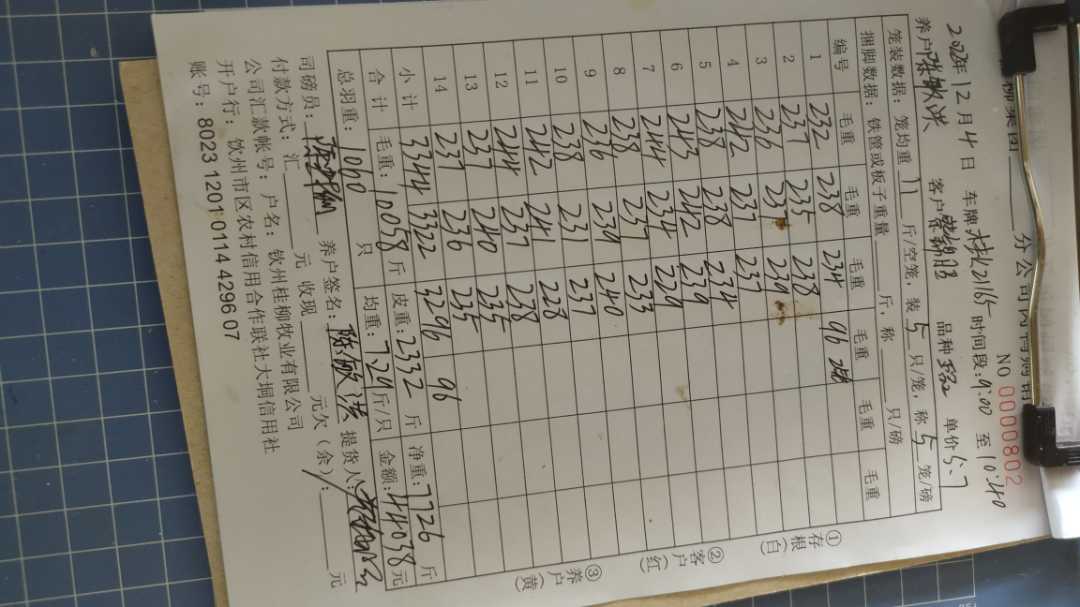 分公司肉鸭购销
NO 0000802
2022年12月4日 车牌 21165 时间段:9:00 至10:40
养户 陈敏洪 客户 品种 单价5.7
笼装数据:笼均重11斤/空笼,装5只/笼,称5笼/磅
捆脚数据:铁筐或板子重量 斤,称 只/磅
编号 毛重 毛重 毛重 毛重 毛重 毛重
1 232 238 234 96
2 237 235 238
3 236 237 239
4 242 237 237
5 238 238 234
6 243 242 239
7 244 234 229
8 238 237 233
9 236 239 240
10 238 231 237
11 242 241 228
12 244 237 238
13 237 240 235
14 237 236 235
小计 3344 3322 3296 96
合计 毛重:10058斤 皮重:2332斤 净重:7726斤
总羽重:1060只 均重:7.29斤/只 金额:44038元
司磅员: 养户签名:陈敏洪 提货人:
付款方式:汇 元 收现 元欠(余): 元
公司汇款帐号:户名:钦州桂柳牧业有限公司
开户行:钦州市区农村信用合作联社大垌信用社
账号:8023 1201 0114 4296 07
①存根(白) ②客户(红) ③养户(黄)